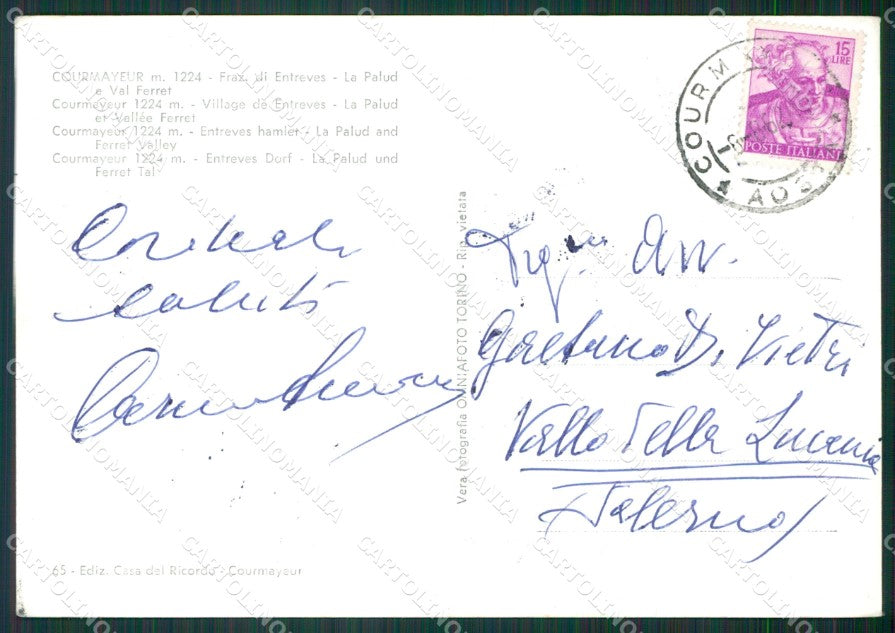 COURMAYEUR m. 1224 - Fraz. di Entreves - La Palud
e Val Ferret
Courmayeur 1224 m. - Village de Entreves - La Palud
et Vallée Ferret
Courmayeur 1224 m. - Entreves hamlet - La Palud and
Ferret Valley
Courmayeur 1224 m. - Entreves Dorf - La Palud und
Ferret Tal
Cordiali
saluti
65 - Ediz. Casa del Ricordo - Courmayeur
Vera fotografia OMNIAFOTO TORINO - Rip. vietata
15
LIRE
POSTE ITALIANE
COURMAYEUR
AOSTA
Sig. Avv.
Gaetano Di Vietri
Vallo della Lucania
(Salerno)
CARTOLINOMANIA